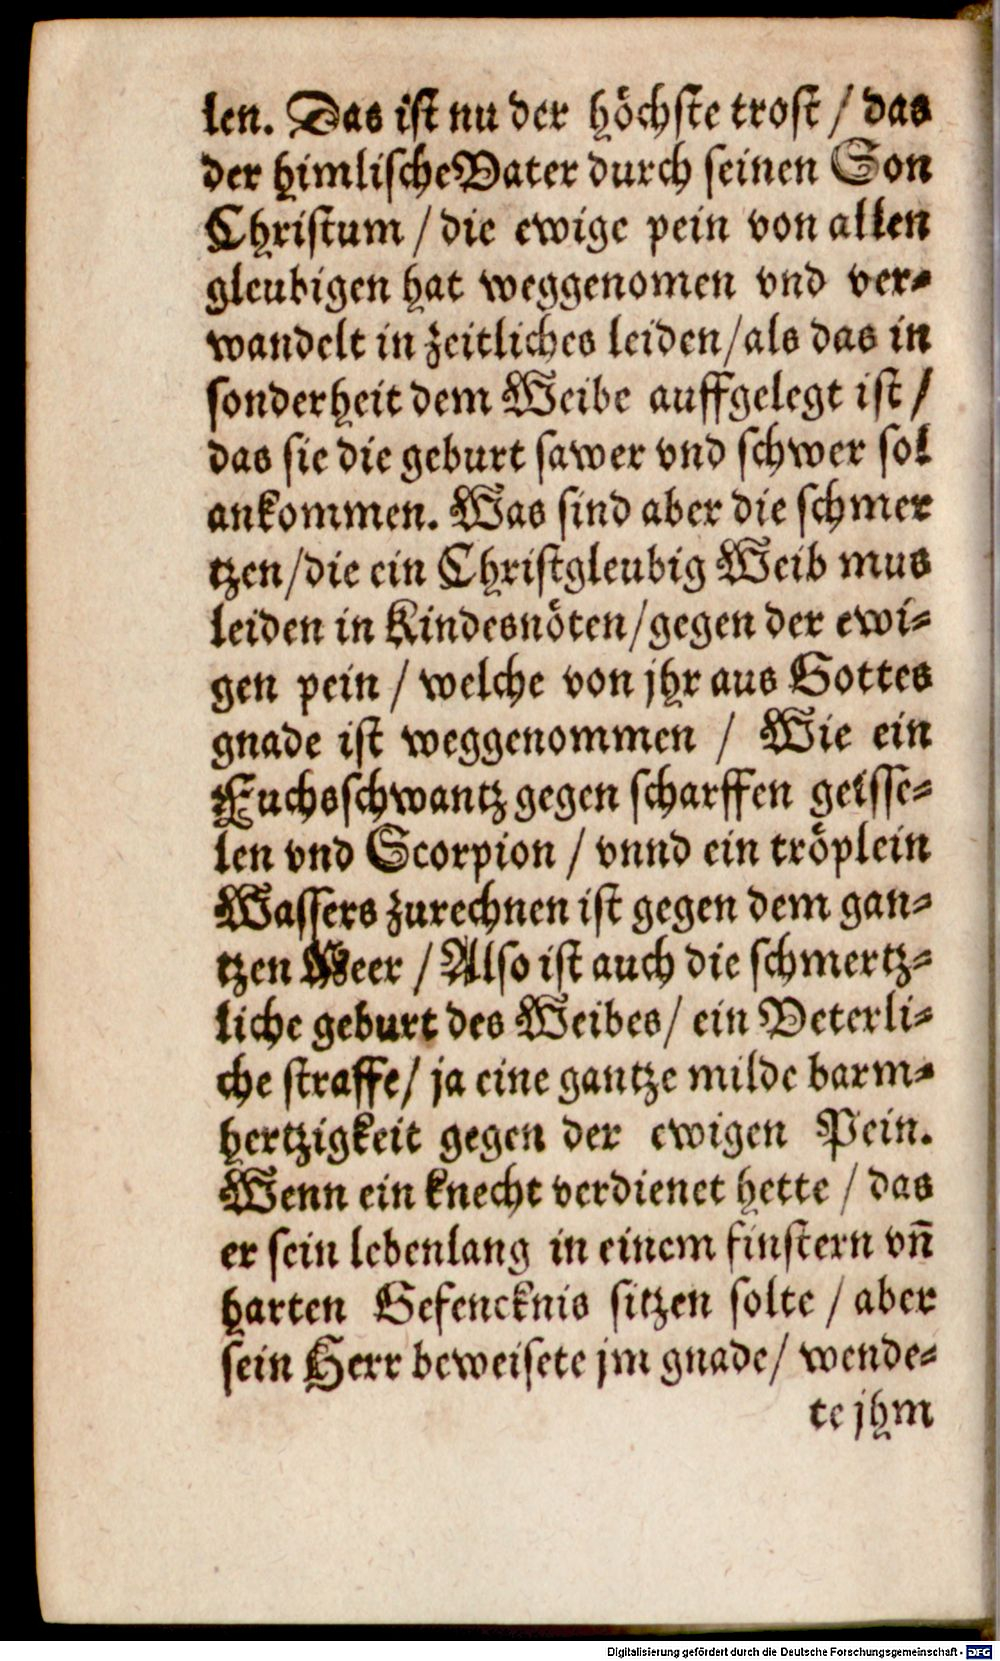 len. Das ist nu der höchste trost / das
der himlische Vater durch seinen Son
Christum / die ewige pein von allen
gleubigen hat weggenomen vnd ver⸗
wandelt in zeitliches leiden / als das in
sonderheit dem Weibe auffgelegt ist /
das sie die geburt sawer vnd schwer sol
ankommen. Was sind aber die schmer
tzen / die ein Christgleubig Weib mus
leiden in Kindesnöten / gegen der ewi⸗
gen pein / welche von jhr aus Gottes
gnade ist weggenommen / Wie ein
Fuchsschwantz gegen scharffen geisse⸗
len vnd Scorpion / vnnd ein tröplein
Wassers zurechnen ist gegen dem gan⸗
tzen Meer / Also ist auch die schmertz⸗
liche geburt des Weibes / ein Veterli⸗
che straffe / ja eine gantze milde barm⸗
hertzigkeit gegen der ewigen Pein.
Wenn ein knecht verdienet hette / das
er sein lebenlang in einem finstern vn̄
harten Gefencknis sitzen solte / aber
sein Herr beweisete jm gnade / wende⸗
te jhm
Digitalisierung gefördert durch die Deutsche Forschungsgemeinschaft - DFG